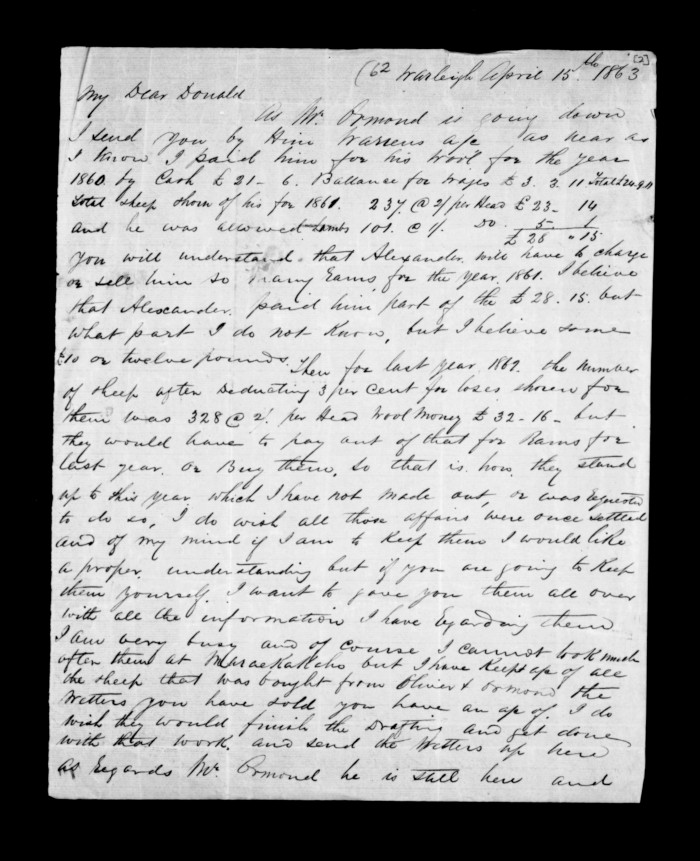 [2]
(62 Warleigh April 15th 1863
My Dear Donald
As Mr. Ormond is going down
I send you by Him Warrens a/c as near as
I Know I paid him for his wool for the year
1860 by Cash £ 21 - 6. Ballance for Wages £ 3. 3. 11 Total £24.9.11
Total Sheep shorn of his for 1861. 237 @ 2/ per Head £ 23 - 14
and he was allowed Lambs 101. @ 1/. Do. 5 - 1
£ 28 " 15
You will understand that Alexander will have to charge
or sell him so many Rams for the year 1861. I believe
that Alexander paid him part of the £ 28. 15 but
what part I do not Know, but I believe some
£10 or twelve pounds. Then for last year 1862. the number
of sheep after Deducating 3 per cent for loses shoren for
them was 328 @ 2/. per Head Wool Money £ 32 - 16 - but
they would have to pay out of that for Rams for
last year. or Buy them, so that is how they stand
up to this year which I have not made out, or was Equested
to do so, I do wish all those affairs were once settled
and of my mind if I am to Keep them I would like
a proper understanding but if you are going to Keep
them yourself I want to gave you them all over
with all the information I have Egarding them
I am very busy and of course I cannot look much
after them at Maraekakaho but I have Keept a/c of all
the sheep that was bought from Oliver & Ormond the
Wetters you have sold you have an a/c of. I do
wish they would finish the Drafting and get done
with that work. and send the Wetters up here
as Egards Mr. Ormond he is stall here and